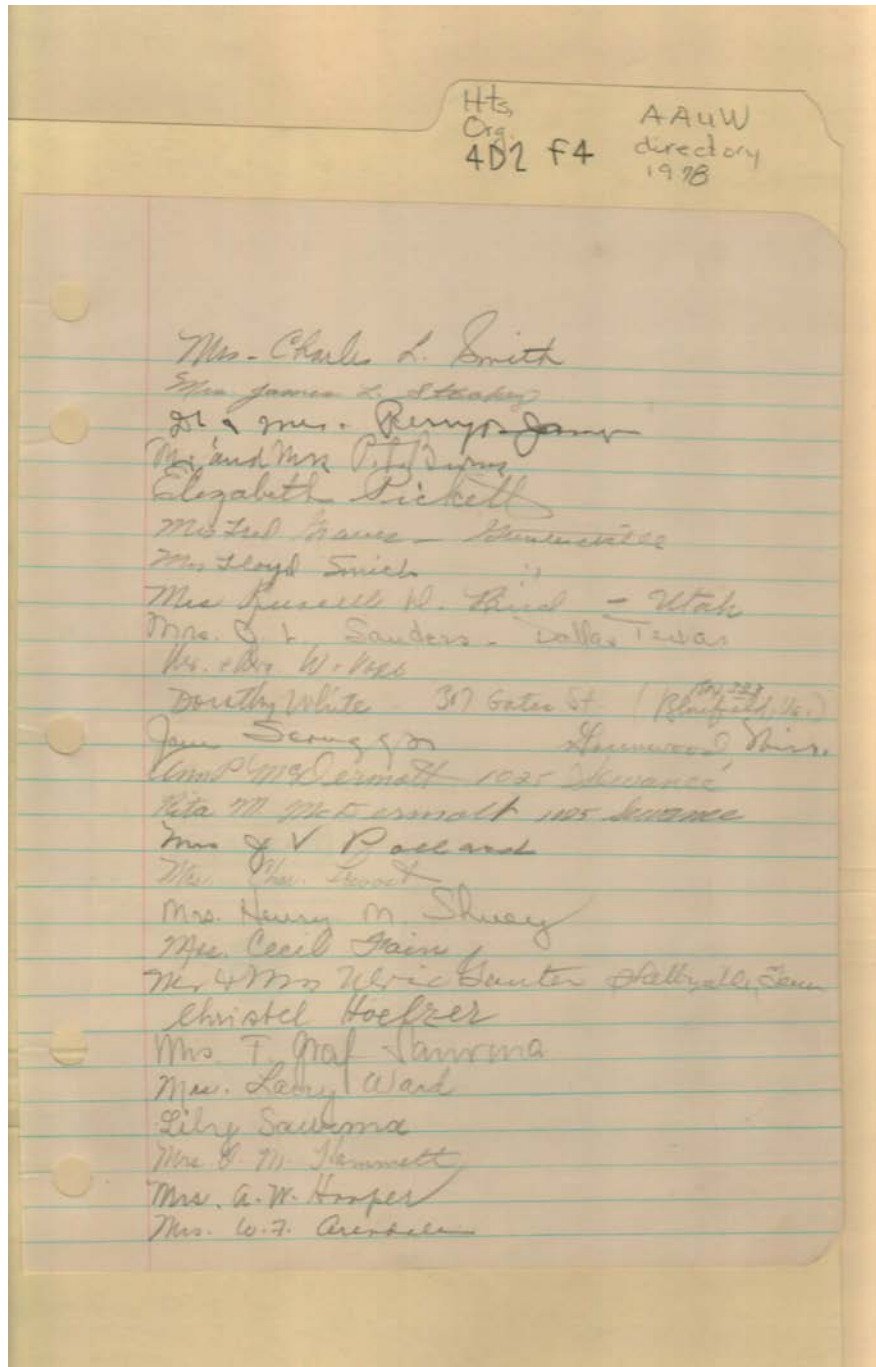 Hts,
Org.
4D2 F4
AAUW
directory
1978
Mrs. Charles L. Smith
Mrs James L.
Dr & Mrs.
Mr. and Mrs P. L.
Elizabeth Pickett
Mrs Fred
Mrs Lloyd Smith "
Mrs Russell D. Bird - Utah
Mrs. J. L. Sanders - Dallas Texas
W.
Dorothy White 307 Gates St (Bluefield, Va.)
Jane Scruggs Greenwood, Miss.
Ann P McDermott 1025 Sewanee
Rita M McDermott 1025 Sewanee
Mrs J V Pollard
Mrs. Chas.
Mrs. Henry M. Shuey
Mrs. Cecil Fain
Mr & Mrs Ulric Shelbyville, Tenn
Christel Hoelzer
Mrs T. Graf
Mrs. Larry Ward
Mrs O. M. Hammett
Mrs. A. W. Hooper
Mrs. W. F. Arendale